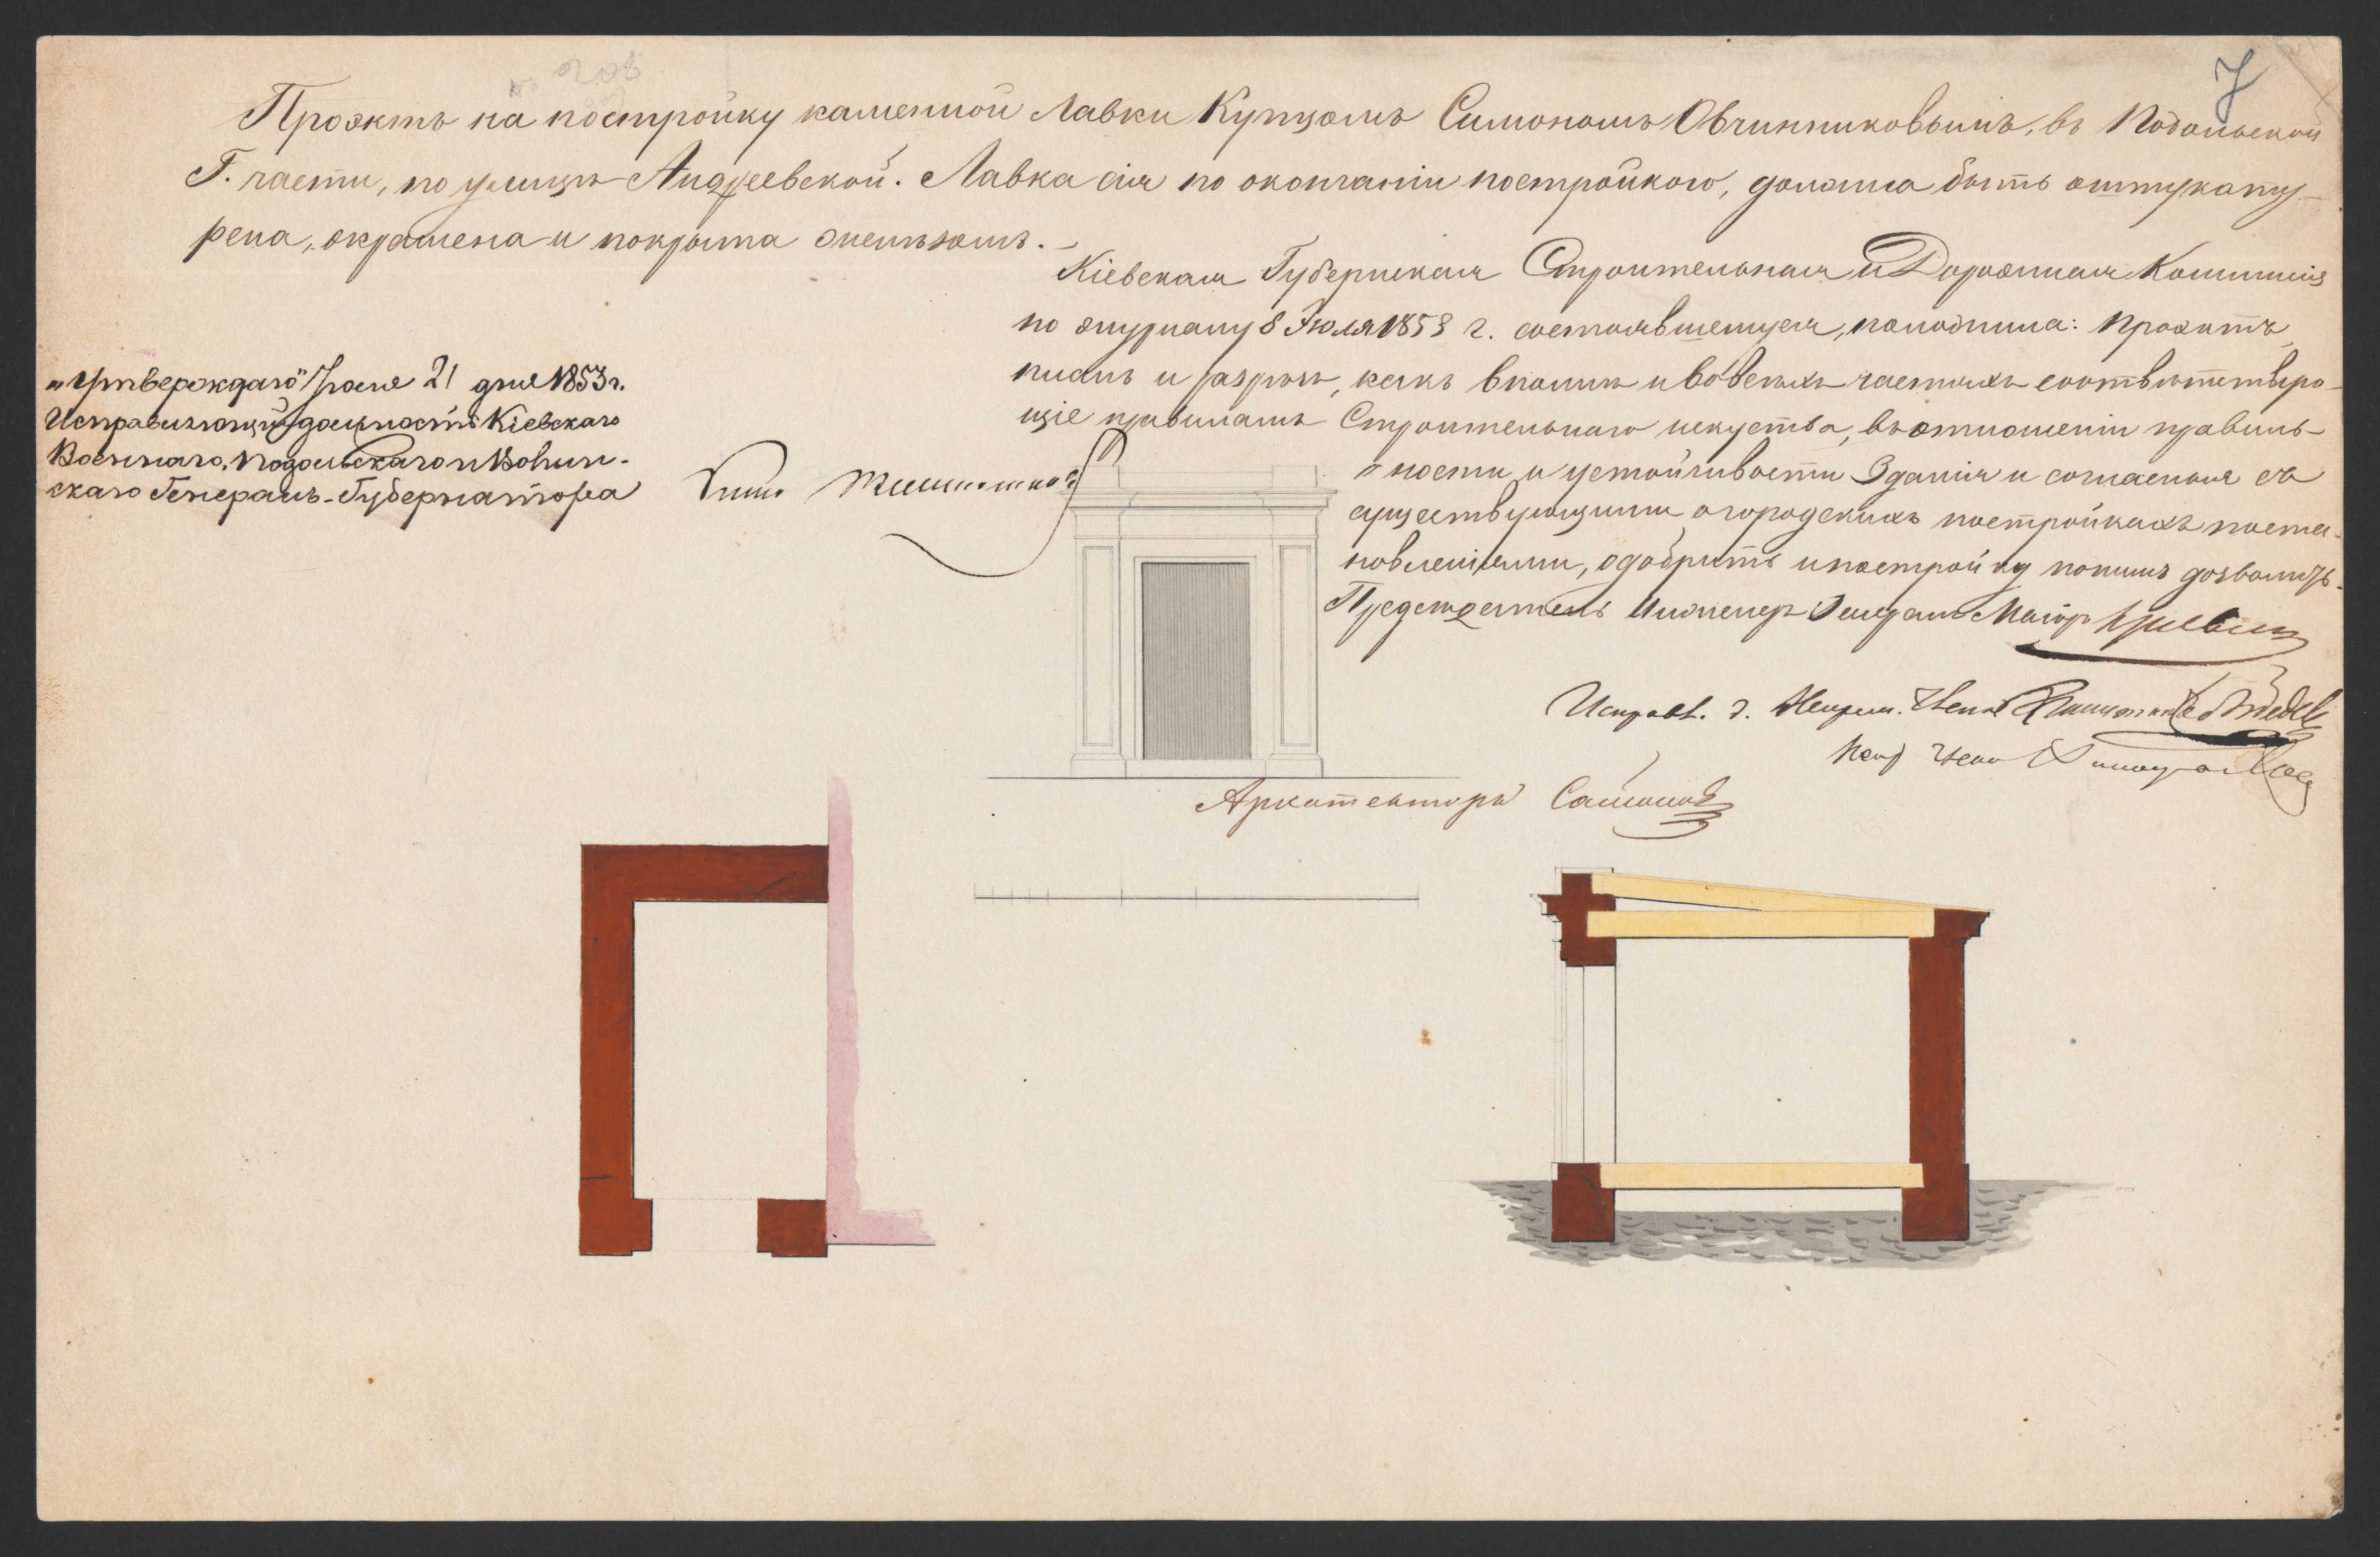 7
Проэктъ на постройку каменной Лавки Купцомъ Симономъ Овчинниковымъ, въ Подольской
Г. части, по улицѣ Андреевской. Лавка сія по окончаніи постройкою, должна быть оштукату-
рена, окрашена и покрыта желѣзомъ.
Кіевская Губернская Строительная и Дорожная Коммиссія
по журналу 8 Іюля 1853 г. состоявшемуся, положила: проэктъ
планъ и разрѣзъ, какъ вполнѣ и во всѣхъ частяхъ соотвѣтствую-
щіе правиламъ Строительнаго искуства, въ отношеніи правиль-
ности и устойчивости Зданія и согласныя съ
существующими о городскихъ постройкахъ поста-
новленіями, одобрить и постройку по нимъ дозволить.
Предсѣдатель Инженеръ Генералъ Маіоръ
„Утверждаю" Іюля 21 дня 1853 г.
Исправляющій должность Кіевскаго
Военнаго, Подольскаго и Волын-
скаго Генералъ-Губернатора
Исправ. д.
Архитекторъ